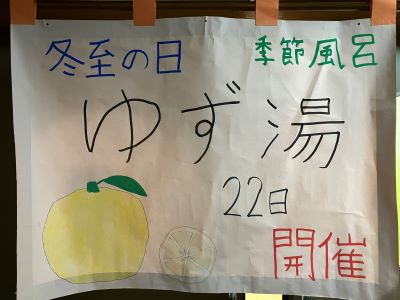 冬至の日 季節風呂
ゆず湯
22日
開催